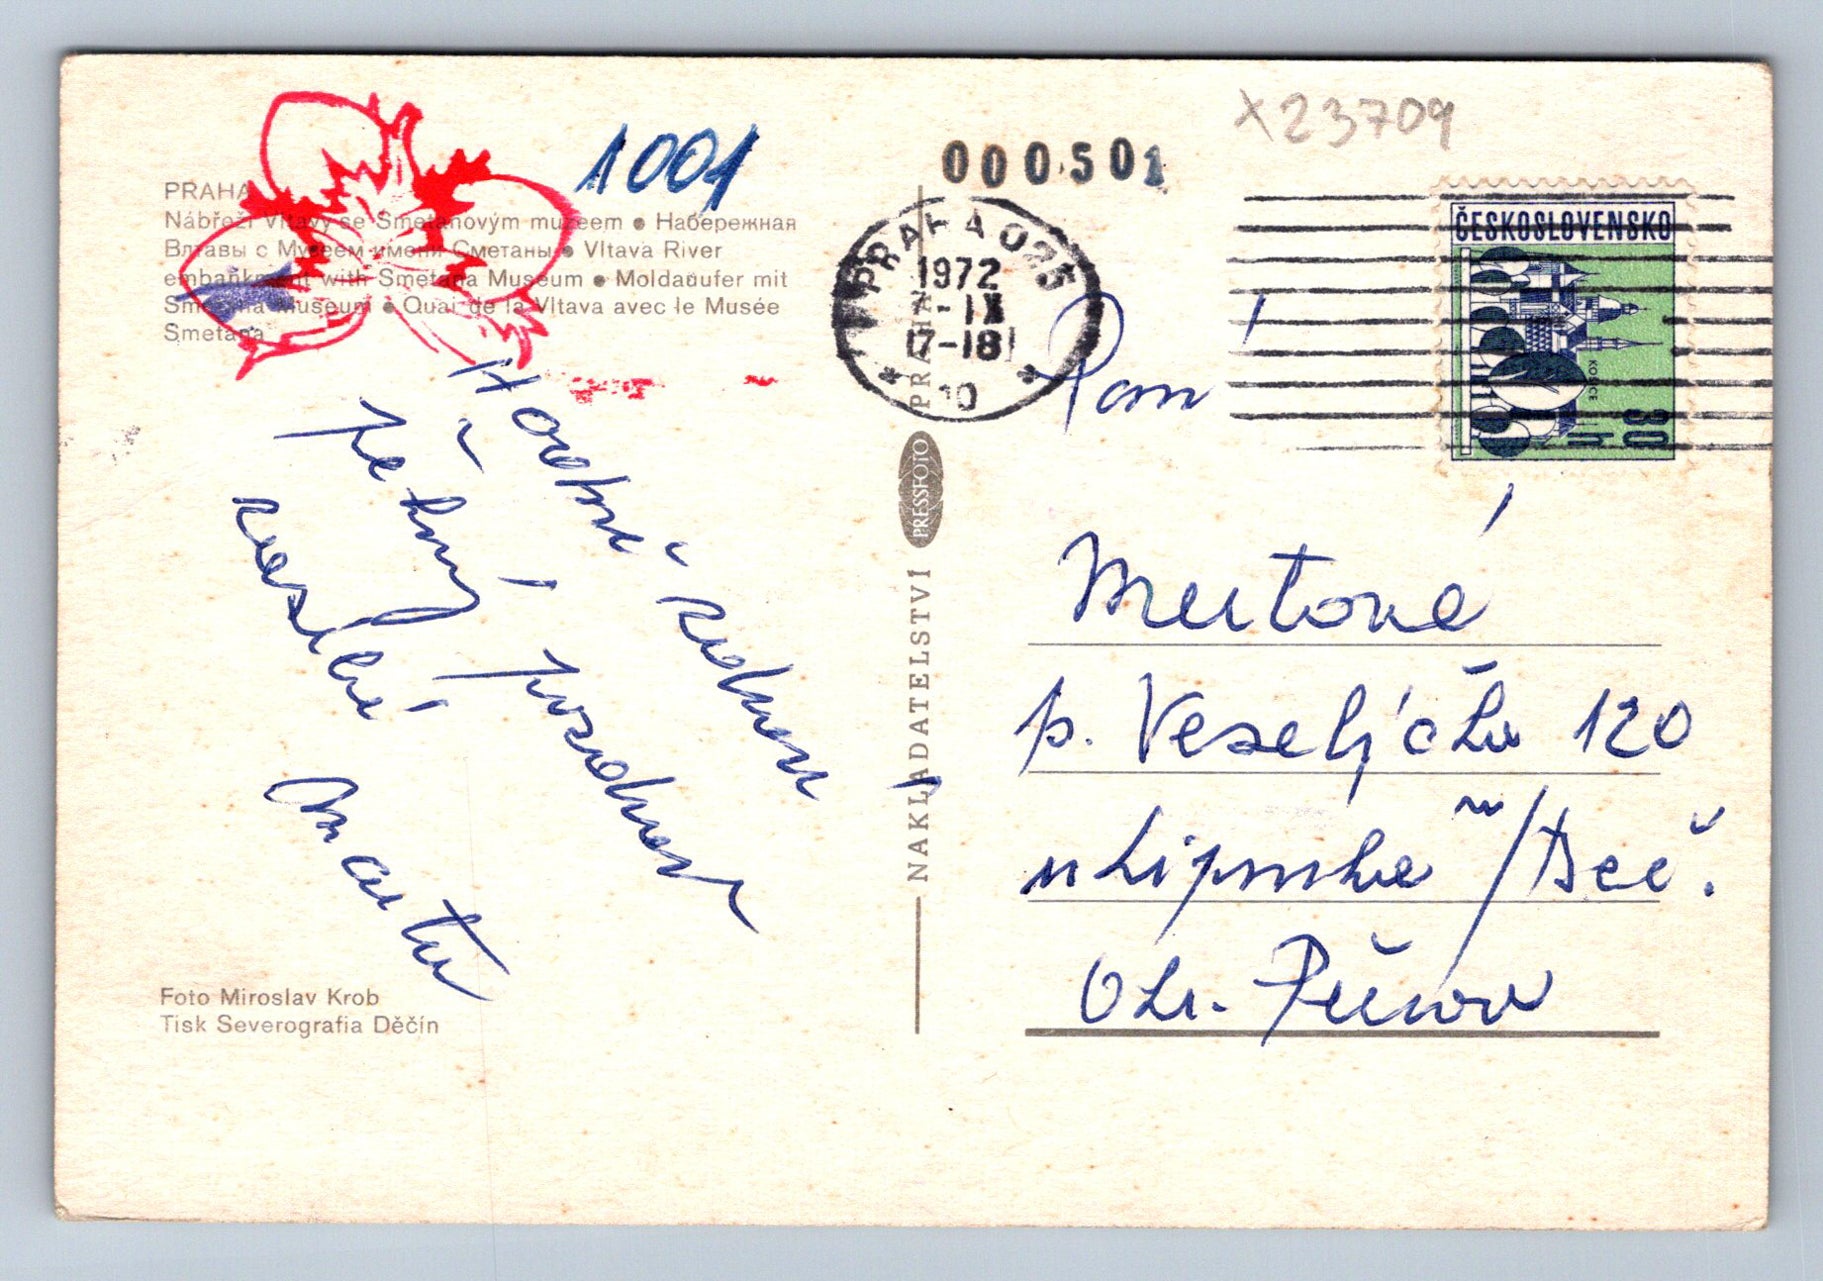 PRAHA
Nábřeží Vltavy se Smetanovým muzeem ● Набережная
Влтавы с Музеем имени Сметаны ● Vltava River
embankment with Smetana Museum ● Moldauufer mit
Smetana Museum ● Quai de la Vltava avec le Musée
Smetana
1001
Hodně zdraví
pěkný pozdrav
zasílá
Foto Miroslav Krob
Tisk Severografia Děčín
NAKLADATELSTVÍ PRESSFOTO PRAHA
000501
x23709
PRAHA 025
1972
-IX
17-18
10
ČESKOSLOVENSKO
KOŠICE
30 h
Paní
p. Veselíčko 120
u Lipníka n/Beč.
Okr. Přerov